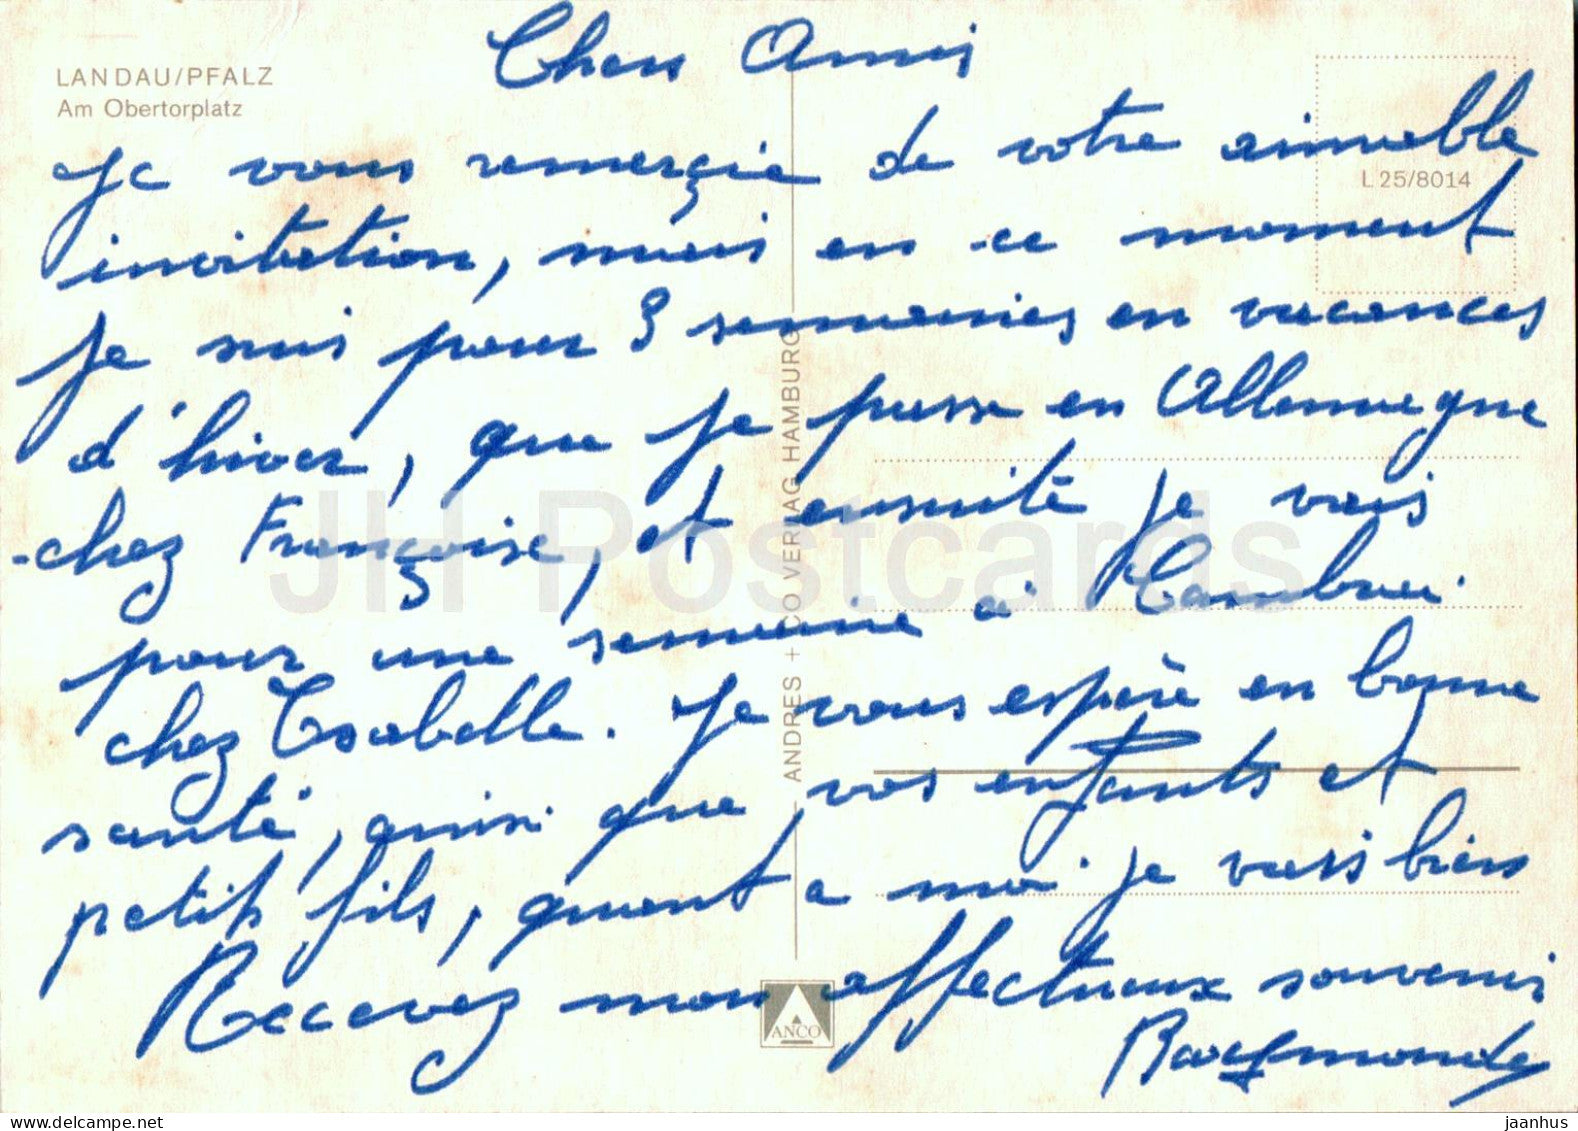 LANDAU/PFALZ
Am Obertorplatz
L 25/8014
Chers Amis
Je vous remerçie de votre aimable
invitation, mais en ce moment
je suis pour 3 semaines en vacances
d'hiver, que je passe en Allemagne
chez Françoise, et ensuite je vais
pour une semaine à Cambrai
chez Isabelle. Je vous espère en bonne
santé, ainsi que vos enfants et
petits fils, quant a moi je vais bien
Recevez mon affectueux souvenir
Raymonde
ANDRES + CO VERLAG HAMBURG
ANCO
JH Postcards
delcampe.net
jaanhus